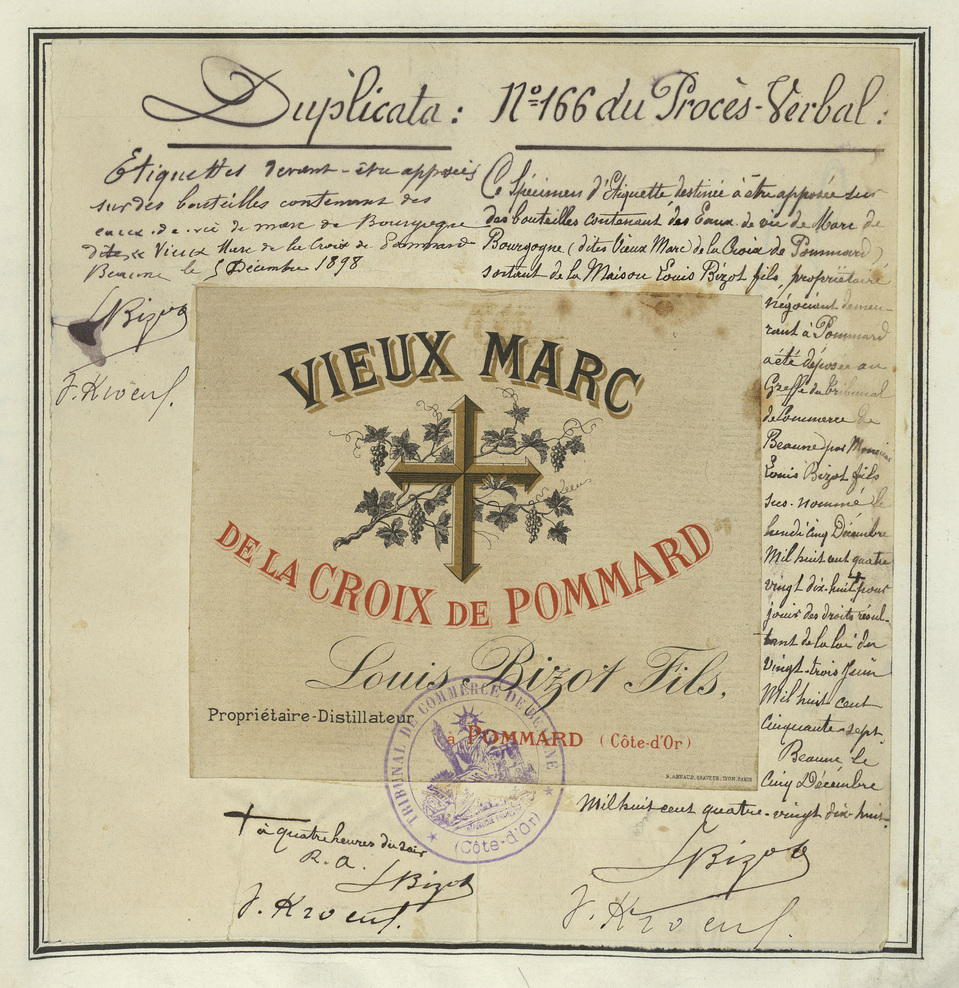 Duplicata : Nº 166 du Procès-Verbal :
Etiquettes devant être apposées
sur des bouteilles contenant des
eaux-de-vie de marc de Bourgogne
dites « Vieux Marc de la Croix de Pommard
Beaune le 5 Décembre 1898
LBizot
J. Kroeuf.
Ce Spécimen d'Etiquette destinée à être apposée sur
des bouteilles contenant des Eaux-de-vie de Marc de
Bourgogne (dites Vieux Marc de la Croix de Pommard)
sortant de la Maison Louis Bizot fils, propriétaire
négociant demeu-
rant à Pommard
a été déposée au
Greffe du Tribunal
de Commerce de
Beaune par Monsieur
Louis Bizot fils
sus-nommé le
lundi cinq Décembre
Mil huit cent quatre
vingt dix-huit + pour
jouir des droits résul-
tant de la loi du
Vingt-trois Juin
Mil huit cent
Cinquante-sept.
Beaune le
Cinq Décembre
Mil huit cent quatre-vingt dix-huit.
LBizot
J. Kroeuf.
VIEUX MARC
DE LA CROIX DE POMMARD
Louis Bizot Fils,
Propriétaire-Distillateur
à POMMARD (Côte-d'Or)
TRIBUNAL DE COMMERCE DE BEAUNE
(Côte-d'Or)
+ à quatre heures du soir
R. A.
LBizot
J. Kroeuf.